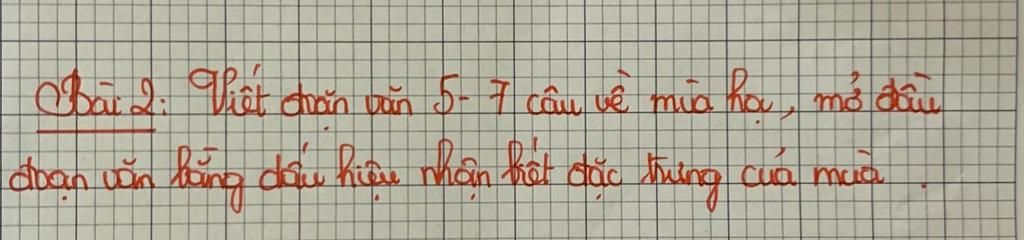 Bài 2: Viết đoạn văn 5-7 câu về mùa hạ, mở đầu
đoạn văn bằng dấu hiệu nhận biết đặc trưng của mùa.